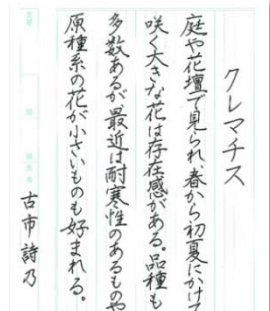 クレマチス
庭や花壇で見られ、春から初夏にかけて
咲く大きな花は存在感がある。品種も
多数あるが最近は耐寒性のあるものや
原種系の花が小さいものも好まれる。
古市詩乃